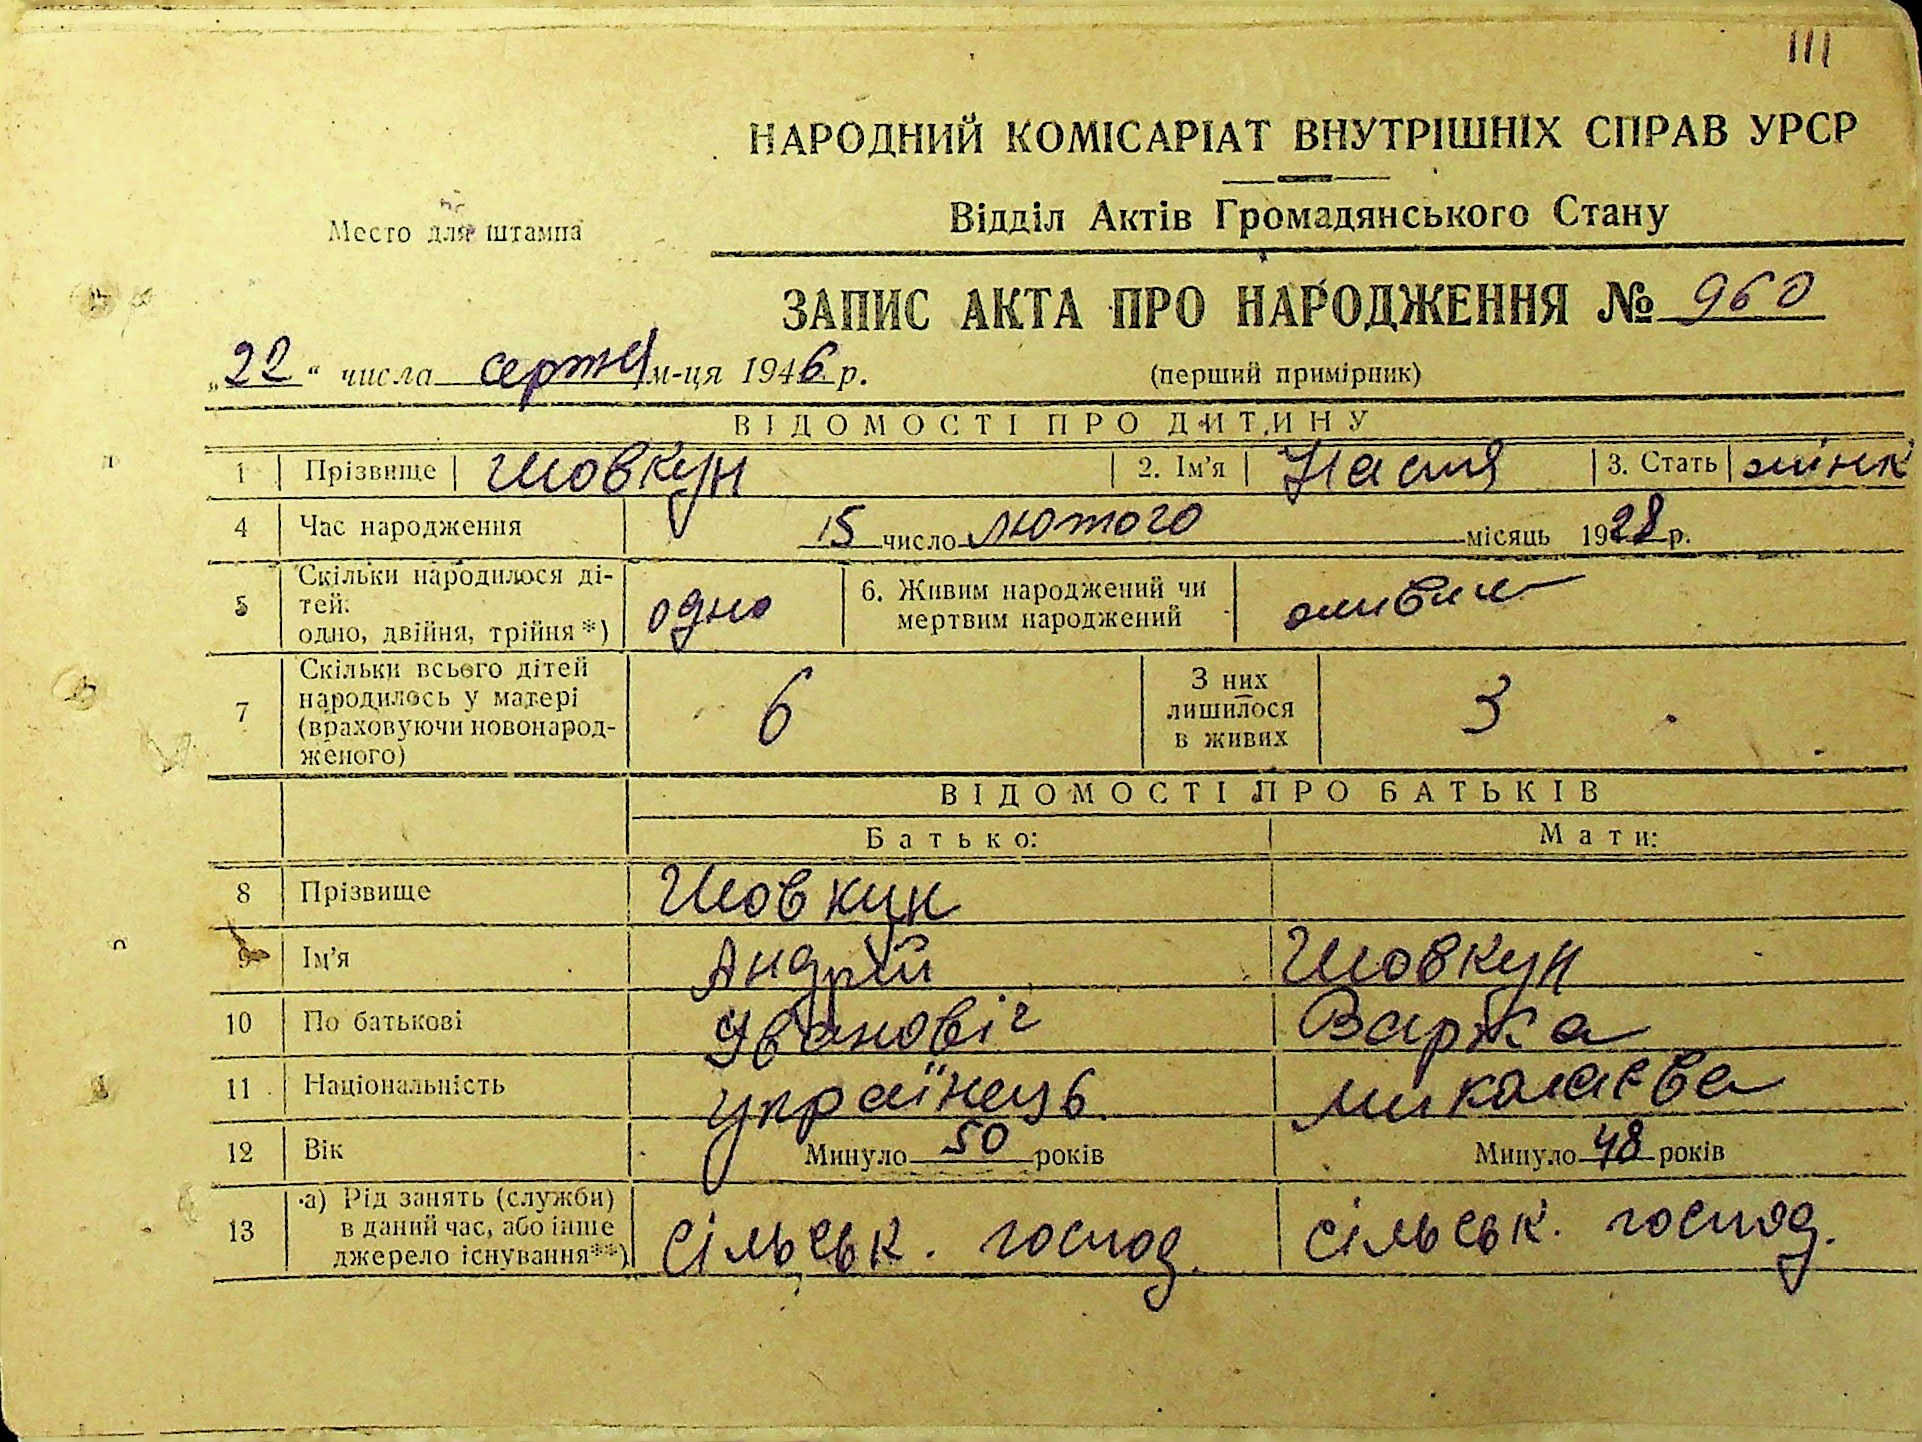 111
НАРОДНИЙ КОМІСАРІАТ ВНУТРІШНІХ СПРАВ УРСР
Место для штампа
Відділ Актів Громадянського Стану
ЗАПИС АКТА ПРО НАРОДЖЕННЯ № 960
„22“ числа серпня м-ця 1946 р. (перший примірник)
ВІДОМОСТІ ПРО ДИТИНУ
1 Прізвище Шовкун 2. Ім’я Настя 3. Стать жінк
4 Час народження 15 число лютого місяць 1928 р.
5 Скільки народилося ді-
тей:
одно, двійня, трійня *) одно 6. Живим народжений чи
мертвим народжений живим
7 Скільки всього дітей
народилось у матері
(враховуючи новонарод-
женого) 6 З них
лишилося
в живих 3
ВІДОМОСТІ ПРО БАТЬКІВ
Батько: Мати:
8 Прізвище Шовкун
9 Ім’я Андрій Шовкун
10 По батькові Увановіч Варка
11 Національність українець Миколаєва
12 Вік Минуло 50 років Минуло 48 років
13 а) Рід занять (служби)
в даний час, або інше
джерело існування**) сільськ. господ. сільськ. господ.